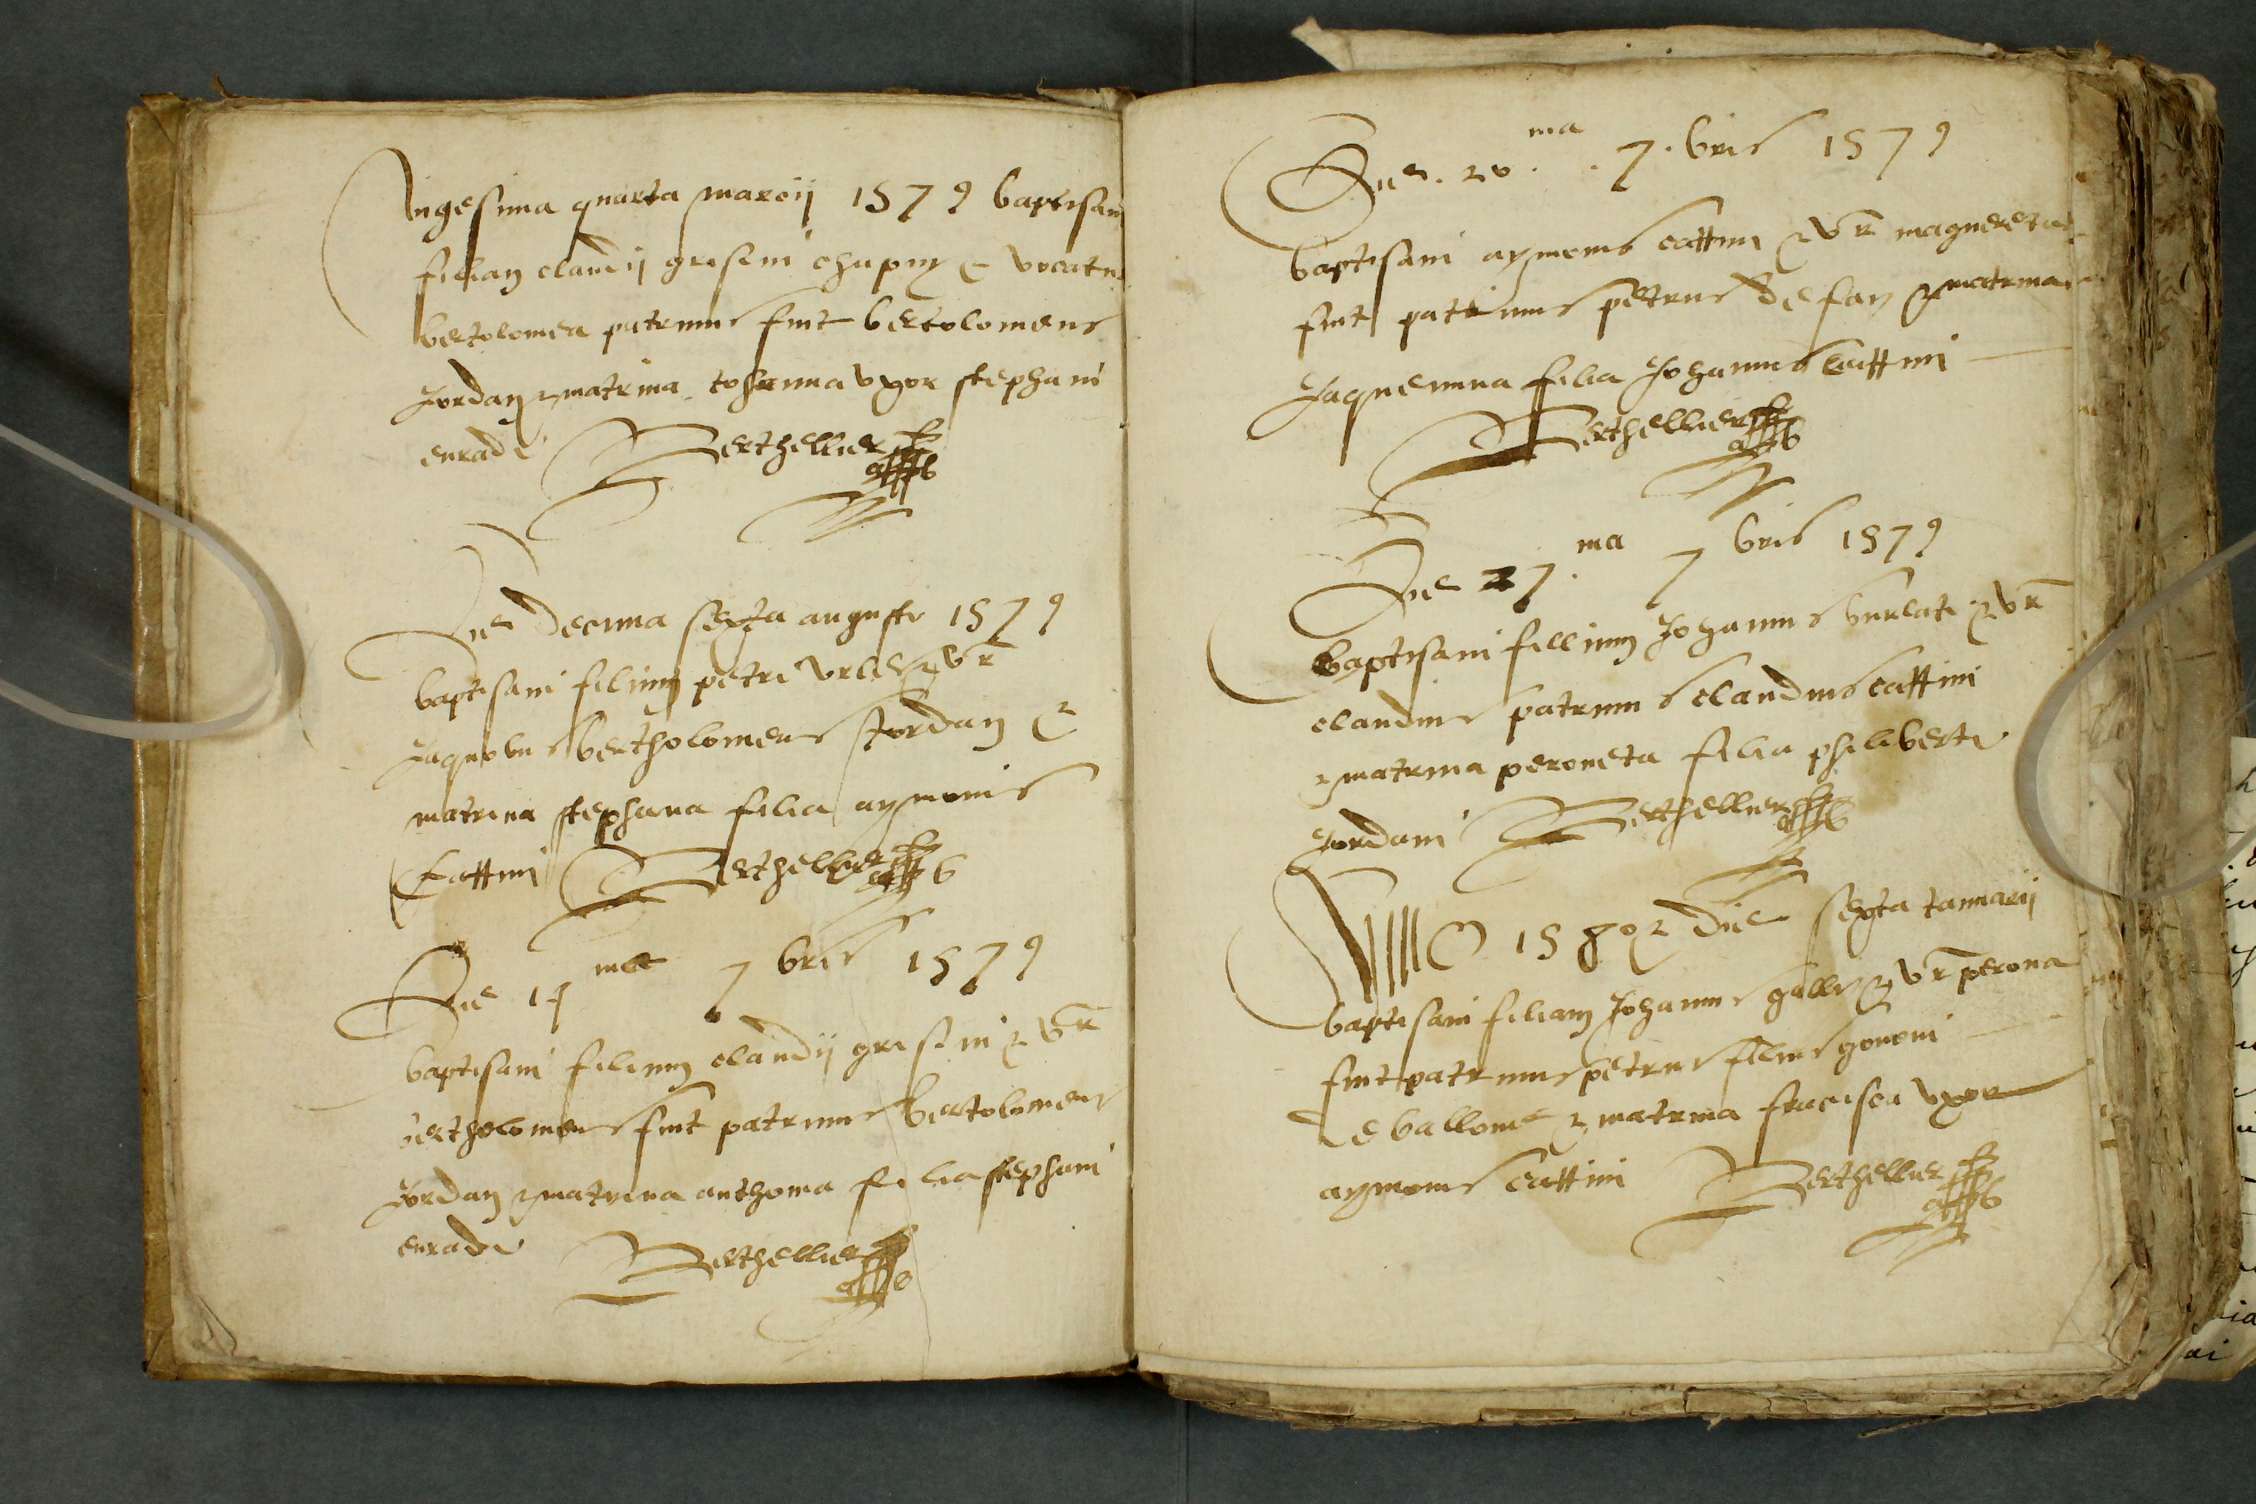 Vigesima quarta marcii 1579 baptisavi
filiam claudii grisini chapuy & vocatur
bertolomea patrinus fuit bertolomeus
Jordan & matrina Johanna uxor stephani
curadi Berthellier
Die decima sexta augusti 1579
baptisavi filium petri & vr
Jaquobus bertholomeus Jordan &
matrina stephana filia aymonis
Cattini Berthellier
Die 14 ma 7 bris 1579
baptisavi filium claudii grisini & vr
bertholomeus fuit patrinus bertolomeus
Jordan & matrina anthonia filia stephani
curadi Berthellier
Die . 20 . ma . 7 . bris 1579
baptisavi aymonis cattini & vr magnereta
fuit patrinus petrus de fay & matrina
Jaquemina filia Johannis cattini
Berthellier
Die 27 . ma 7 bris 1579
baptisavi fillium Johannis & vr
claudius patrinus claudius cattini
& matrina peroneta filia philiberti
Jordani Berthellier
ANNO 1580 & die sexta Januarii
baptisavi filiam Johannis galli & vr perona
fuit patrinus petrus filius gononi
de ballone & matrina francisca uxor
aymonis cattini Berthellier